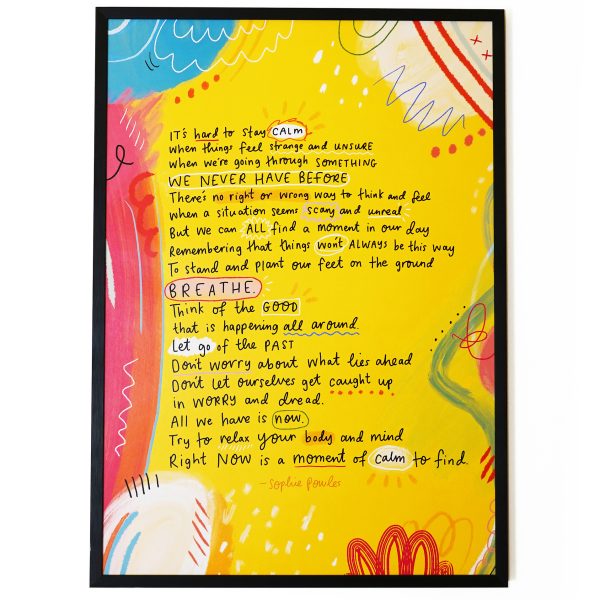 IT'S hard to stay CALM
when things feel strange and UNSURE
when we're going through SOMETHING
WE NEVER HAVE BEFORE
There's no right or wrong way to think and feel
when a situation seems scary and unreal
But we can ALL find a moment in our day
Remembering that things won't ALWAYS be this way
To stand and plant our feet on the ground
BREATHE.
Think of the GOOD
that is happening all around.
Let go of the PAST
Don't worry about what lies ahead
Don't let ourselves get caught up
in WORRY and dread.
All we have is now.
Try to relax your body and mind
Right NOW is a moment of calm to find.
- Sophie Powles